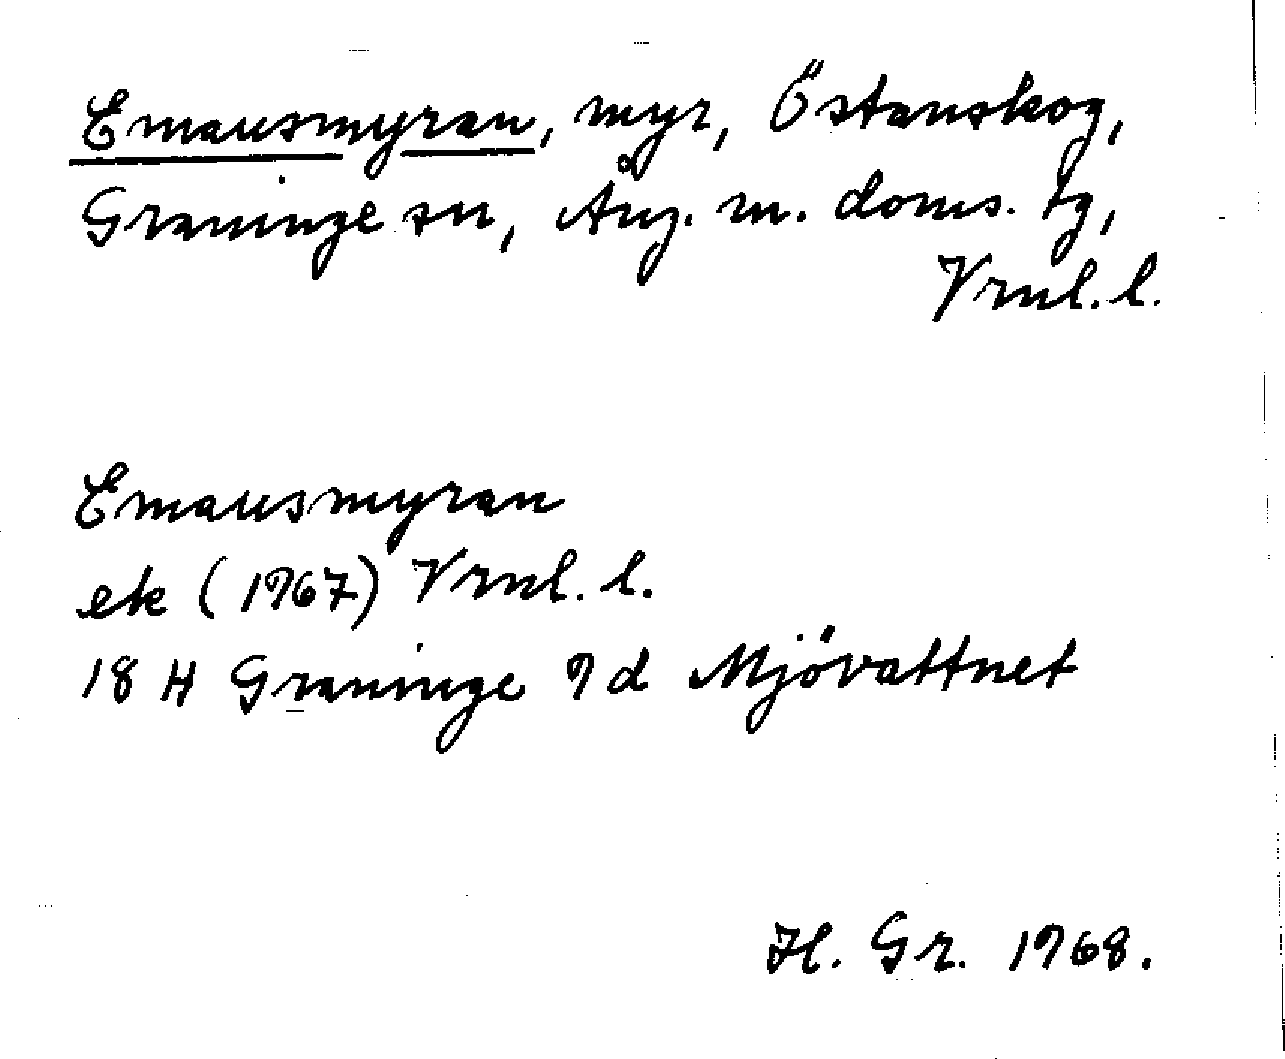 Emausmyran, myr, Östanskog,
Graninge sn, Ång. m. doms. tg,
Vrnl. l.
Emausmyran
ek (1967) Vrnl. l.
18 H Graninge 9 d Mjövattnet
H. Gr. 1968.